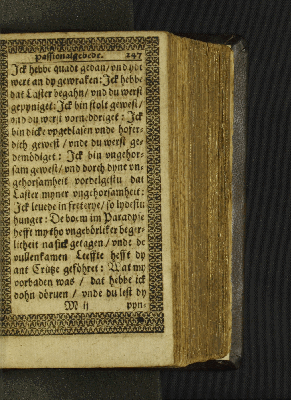 Passionalgebede. 247
Jck hebbe quadt gedan/ vnd du
wert an dy gewraken: Jck hebbe
dat Laster begahn/ vnd du werst
gepyniget: Jck bin stolt gewest/
vnd du werst vornedriget: Jck
bin dicke vpgeblasen vnde hofer-
dich gewest/ vnde du werst ge-
demödiget: Jck bin vngehor-
sam gewest/ vnd dorch dyne vn-
gehorsamheit vordelgestu dat
Laster myner vngehorsamheit:
Jck leuede in freterye/ so lydestu
hunger: De bom im Paradyse
hefft my tho vngehörliker beger-
licheit na sick getagen/ vnde de
vullenkamen Leeffte hefft dy
ant Crütze geföhret: Wat my
vorbaden was/ dat hebbe ick
dohn dörven/ vnde du lest dy
M ij pyn-